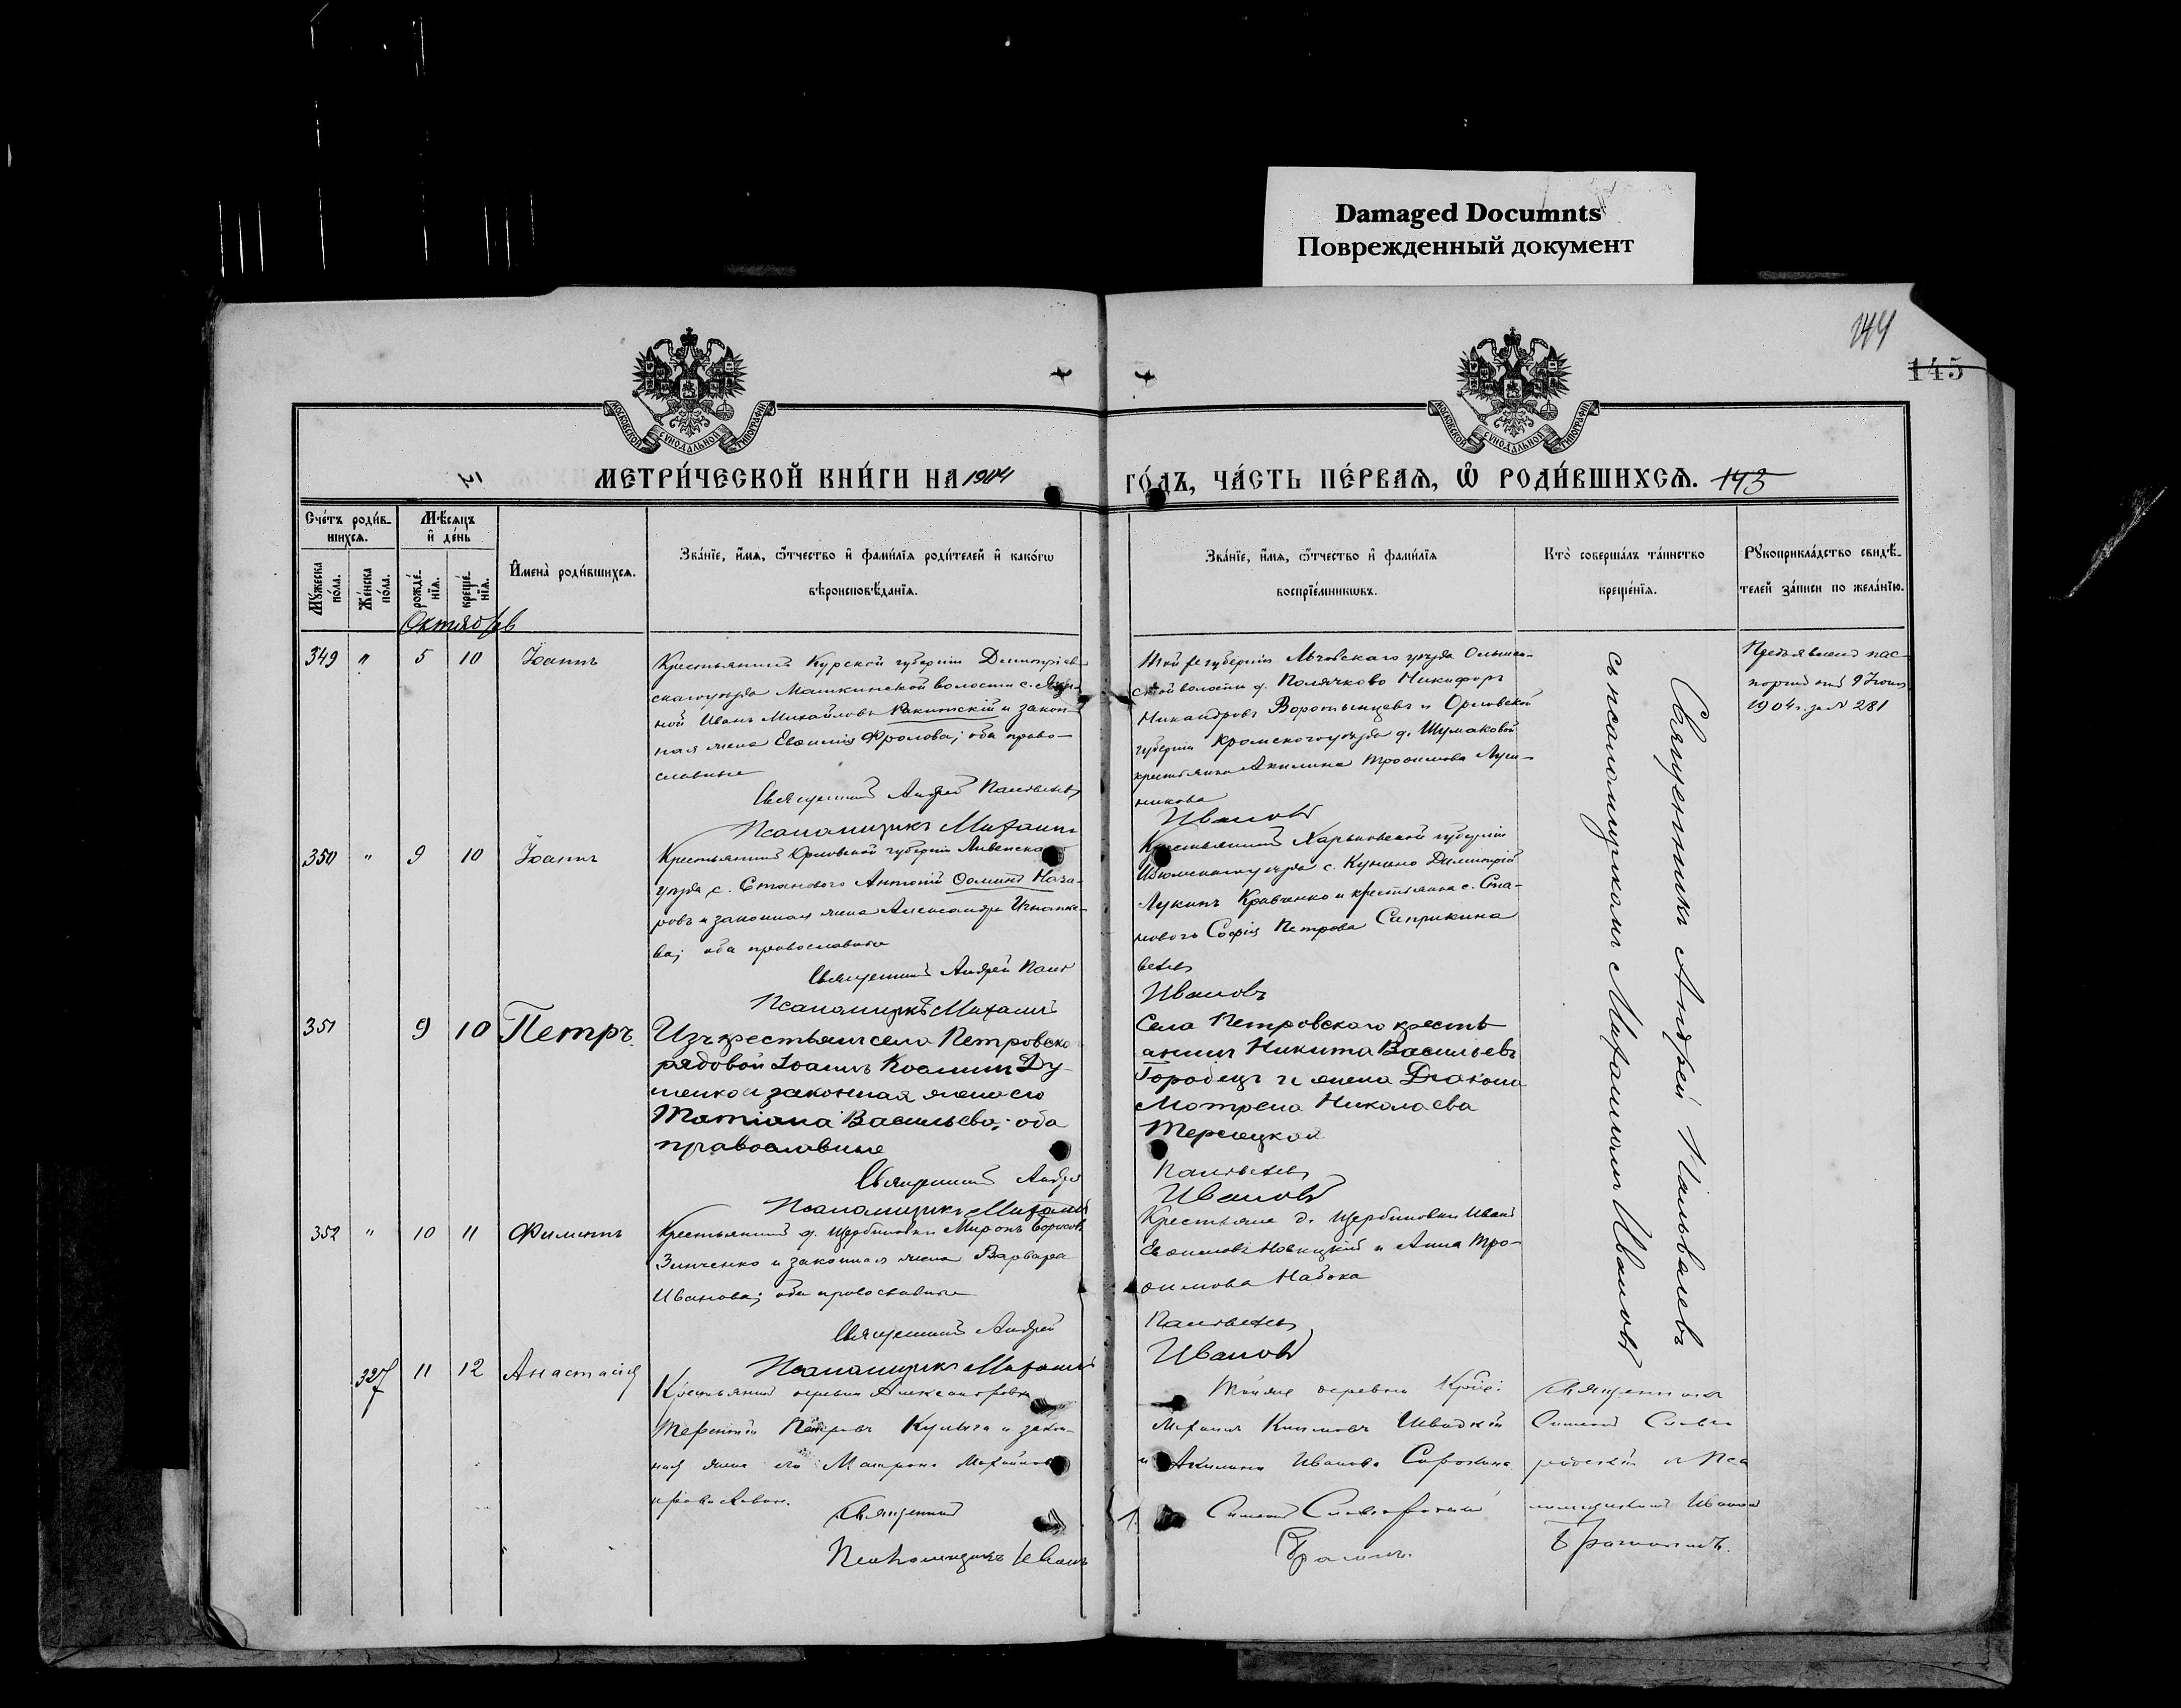 Damaged Documnts
Поврежденный документ
144
145
МОСКОВСКОЙ СѴНОДАЛЬНОЙ ТИПОГРАФІИ
МОСКОВСКОЙ СѴНОДАЛЬНОЙ ТИПОГРАФІИ
МЕТРИ́ЧЕСКОЙ КНИ́ГИ НА 1904
ГО́ДЪ, ЧА́СТЬ ПЕ́РВАЯ, Ѡ РОДИ́ВШИХСЯ. 145
Сче́тъ роди́в-
шихся.
Мѣ́сяцъ
и де́нь
Му́жеска
по́ла.
Же́нска
по́ла.
рожде́-
нїя.
креще́-
нїя.
Имена̀ роди́вшихся.
Зва́нїе, и́мя, ѻ́тчество и фами́лїя роди́телей и како́гѡ
вѣроисповѣ́данїя.
Зва́нїе, и́мя, ѻ́тчество и фами́лїя
воспрїе́мникѡвъ.
Кто̀ соверша́лъ та́инство
креще́нїя.
Рꙋкоприкла́дство свидѣ́-
телей за́писи по жела́нїю.
Октябрь
349 " 5 10 Іоаннъ
Крестьянинъ Курской губерніи Димитріев-
скаго уѣзда Машкинской волости с.
ной Иванъ Михайловъ Ракитскій и закон-
ная жена Евѳимія Фролова; оба право-
славные
Священникъ Андрей
Псаломщикъ Михаилъ
Той же губерніи Льговскаго уѣзда
ской волости д. Полячково Никифоръ
Никандровъ Воротынцевъ и Орловской
губерніи Кромскаго уѣзда д. Шумаковой
крестьянка Акилина Трофимова
никова
Ивановъ
Предъявленъ пас-
портъ отъ 9 Іюня
1904 г. за № 281
Священникъ Андрей
съ псаломщикомъ Михаиломъ Ивановъ
350 " 9 10 Іоаннъ
Крестьянинъ Орловской губерніи Ливенскаго
уѣзда, с. Становаго Антоній Ѳоминъ Наза-
ровъ и законная жена Александра Игнатье-
ва; оба православные
Священникъ Андрей
Псаломщикъ Михаилъ
Крестьянинъ Харьковской губерніи
Изюмскаго уѣзда с. Кунаго Димитрій
Лукинъ Кравченко и крестьянка с. Ста-
новаго Софія Петрова Саприкина
Ивановъ
351 9 10 Петръ.
Изъ крестьянъ села Петровскаго
рядовой Іоаннъ Косминъ Ду-
менко и законная жена его
Татіана Васильева; оба
православные
Священникъ Андрей
Псаломщикъ Михаилъ
Села Петровскаго кресть-
янинъ Никита Васильевъ
Городецъ и жена Діакона
Мотрена Николаева
Терлецкой
Ивановъ
352 " 10 11 Филиппъ
Крестьянинъ д. Щербиновки Миронъ Борисовъ
Зинченко и законная жена Варвара
Иванова; оба православные
Священникъ Андрей
Псаломщикъ Михаилъ
Крестьяне д. Щербиновки Иванъ
Евѳимовъ Новицкій и Анна Тро-
фимова Набока
Ивановъ
327 11 12 Анастасія
Крестьянинъ деревни Александровки
Терентій Петровъ Кулига и закон-
ная жена его Матрона Михайлова
православн.
Священникъ
Псаломщикъ Иванъ
Той же деревни Крест.
Михаилъ Климовъ Швадкій
и Акилина Иванова Сорокина
Симеонъ
Священникъ
Симеонъ
и Пса-
ломщикъ Иванъ